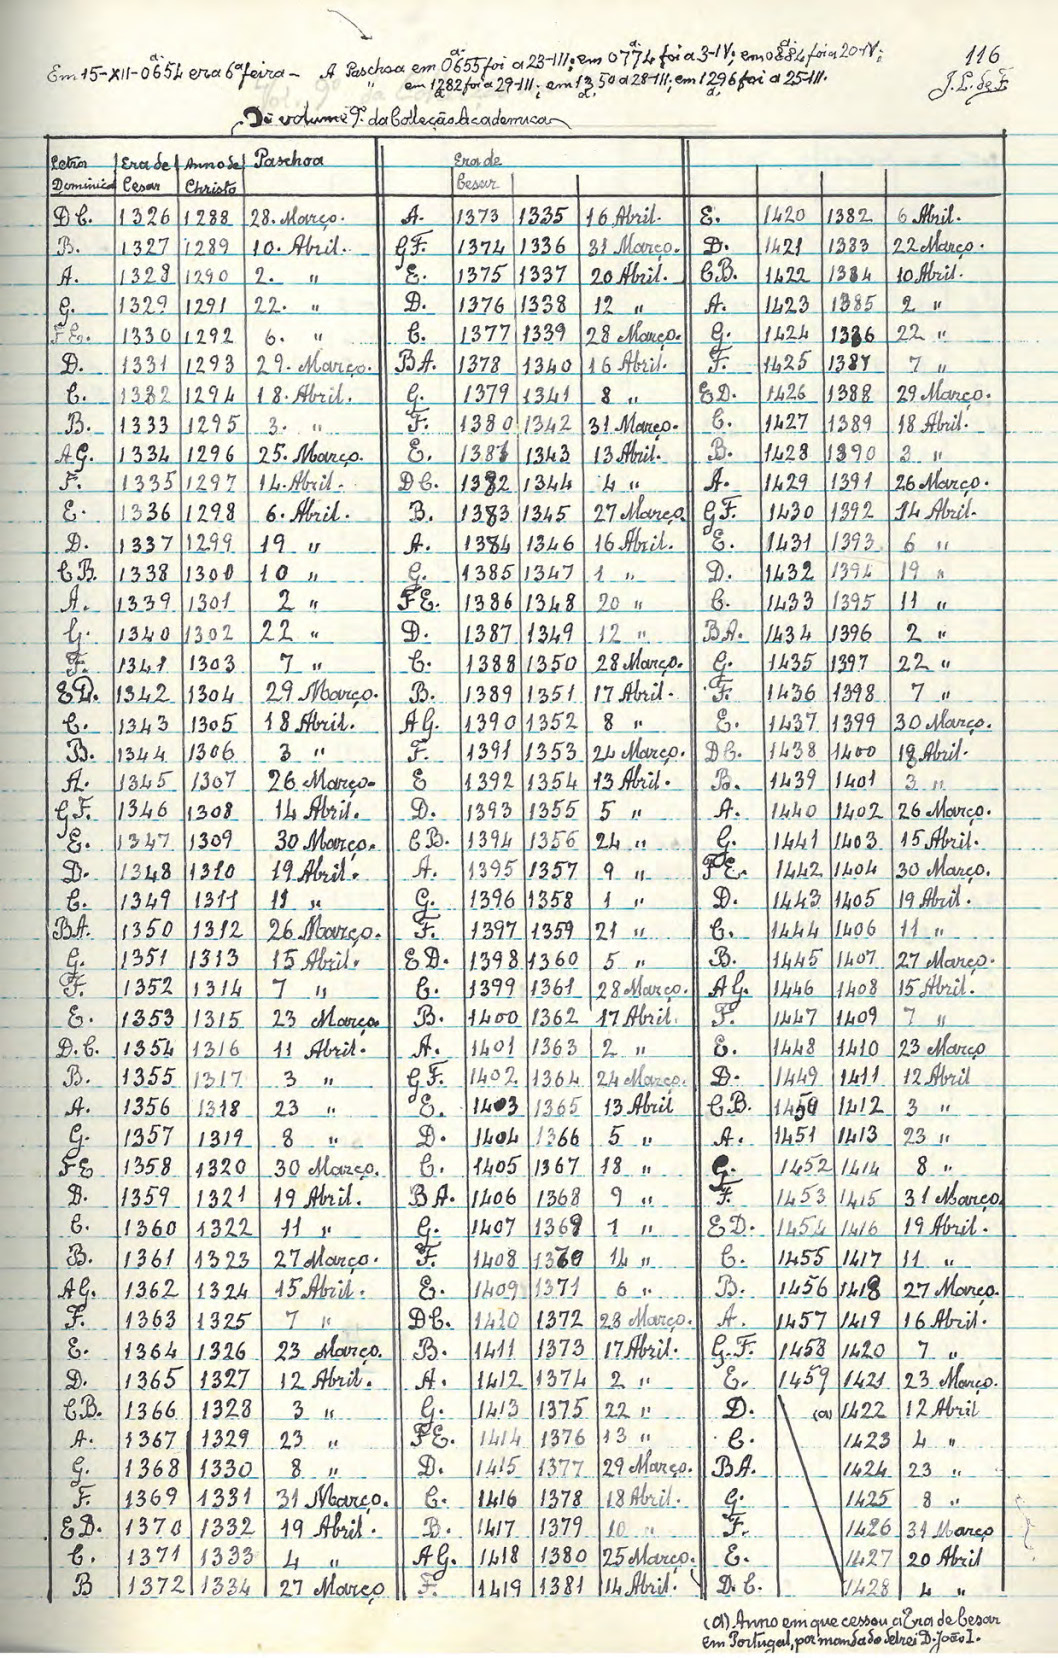 Em 15-XII-0654 era 6ª feira - A Paschoa em 0655 foi a 23-III; em 0774 foi a 3-IV; em 0884 foi a 20-IV; 116
" em 1282 foi a 29-III; em 1350 a 28-III; em 1296 foi a 25-III. J. L. de F.
Do volume 9º da Colleção Academica
Letra Era de Anno de Paschoa Era de
Dominical Cesar Christo Cesar
D C. 1326 1288 28. Março. A. 1373 1335 16 Abril. E. 1420 1382 6 Abril.
B. 1327 1289 10. Abril. G F. 1374 1336 31 Março. D. 1421 1383 22 Março.
A. 1328 1290 2. " E. 1375 1337 20 Abril. C B. 1422 1384 10 Abril.
G. 1329 1291 22. " D. 1376 1338 12 " A. 1423 1385 2 "
F E. 1330 1292 6. " C. 1377 1339 28 Março. G. 1424 1386 22 "
D. 1331 1293 29. Março. B A. 1378 1340 16 Abril. F. 1425 1387 7 "
C. 1332 1294 18. Abril. G. 1379 1341 8 " E D. 1426 1388 29 Março.
B. 1333 1295 3. " F. 1380 1342 31 Março. C. 1427 1389 18 Abril.
A G. 1334 1296 25. Março. E. 1381 1343 13 Abril. B. 1428 1390 3 "
F. 1335 1297 14. Abril. D C. 1382 1344 4 " A. 1429 1391 26 Março.
E. 1336 1298 6. Abril. B. 1383 1345 27 Março. G F. 1430 1392 14 Abril.
D. 1337 1299 19 " A. 1384 1346 16 Abril. E. 1431 1393 6 "
C B. 1338 1300 10 " G. 1385 1347 1 " D. 1432 1394 19 "
A. 1339 1301 2 " F E. 1386 1348 20 " C. 1433 1395 11 "
G. 1340 1302 22 " D. 1387 1349 12 " B A. 1434 1396 2 "
F. 1341 1303 7 " C. 1388 1350 28 Março. G. 1435 1397 22 "
E D. 1342 1304 29 Março. B. 1389 1351 17 Abril. F. 1436 1398 7 "
C. 1343 1305 18 Abril. A G. 1390 1352 8 " E. 1437 1399 30 Março.
B. 1344 1306 3 " F. 1391 1353 24 Março. D C. 1438 1400 18 Abril.
A. 1345 1307 26 Março. E 1392 1354 13 Abril. B. 1439 1401 3 "
G F. 1346 1308 14 Abril. D. 1393 1355 5 " A. 1440 1402 26 Março.
E. 1347 1309 30 Março. C B. 1394 1356 24 " G. 1441 1403 15 Abril.
D. 1348 1310 19 Abril. A. 1395 1357 9 " F E. 1442 1404 30 Março.
C. 1349 1311 11 " G. 1396 1358 1 " D. 1443 1405 19 Abril.
B A. 1350 1312 26 Março. F. 1397 1359 21 " C. 1444 1406 11 "
G. 1351 1313 15 Abril. E D. 1398 1360 5 " B. 1445 1407 27 Março.
F. 1352 1314 7 " C. 1399 1361 28 Março. A G. 1446 1408 15 Abril.
E. 1353 1315 23 Março. B. 1400 1362 17 Abril. F. 1447 1409 7 "
D. C. 1354 1316 11 Abril. A. 1401 1363 2 " E. 1448 1410 23 Março
B. 1355 1317 3 " G F. 1402 1364 24 Março. D. 1449 1411 12 Abril
A. 1356 1318 23 " E. 1403 1365 13 Abril C B. 1450 1412 3 "
G. 1357 1319 8 " D. 1404 1366 5 " A. 1451 1413 23 "
F E 1358 1320 30 Março. C. 1405 1367 18 " G. 1452 1414 8 "
D. 1359 1321 19 Abril. B A. 1406 1368 9 " F. 1453 1415 31 Março.
C. 1360 1322 11 " G. 1407 1369 1 " E D. 1454 1416 19 Abril.
B. 1361 1323 27 Março. F. 1408 1370 14 " C. 1455 1417 11 "
A G. 1362 1324 15 Abril. E. 1409 1371 6 " B. 1456 1418 27 Março.
F. 1363 1325 7 " D C. 1410 1372 28 Março. A. 1457 1419 16 Abril.
E. 1364 1326 23 Março. B. 1411 1373 17 Abril. G. F. 1458 1420 7 "
D. 1365 1327 12 Abril. A. 1412 1374 2 " E. 1459 1421 23 Março.
C B. 1366 1328 3 " G. 1413 1375 22 " D. (a) 1422 12 Abril
A. 1367 1329 23 " F E. 1414 1376 13 " C. 1423 4 "
G. 1368 1330 8 " D. 1415 1377 29 Março. B A. 1424 23 "
F. 1369 1331 31 Março. C. 1416 1378 18 Abril. G. 1425 8 "
E D. 1370 1332 19 Abril. B. 1417 1379 10 " F. 1426 31 Março
C. 1371 1333 4 " A G. 1418 1380 25 Março. E. 1427 20 Abril
B 1372 1334 27 Março F. 1419 1381 14 Abril. D. C. 1428 4 "
(a) Anno em que cessou a Era de Cesar
em Portugal, por mandado delrei D. João I.